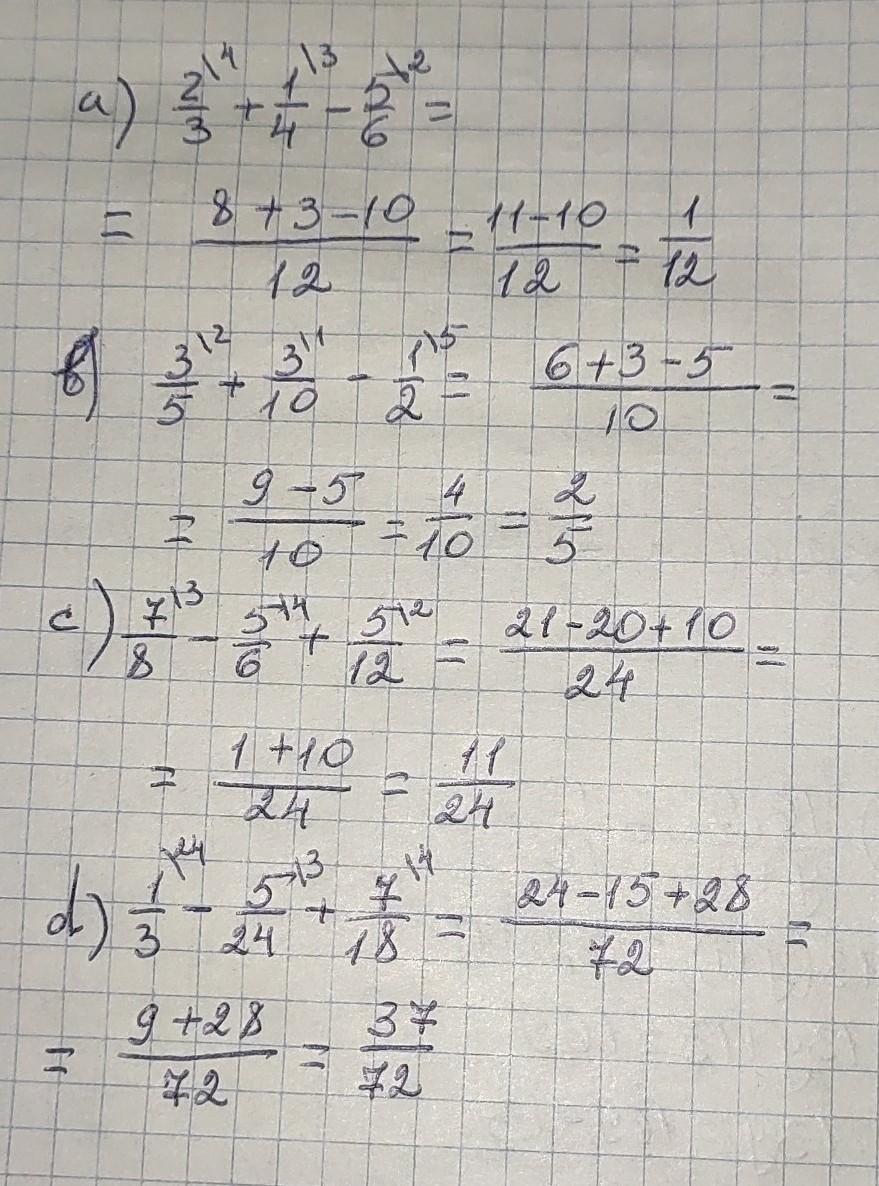 a) 2/3\4 + 1/4\3 - 5/6\2 =
= (8 + 3 - 10)/12 = (11 - 10)/12 = 1/12
b) 3/5\2 + 3/10\1 - 1/2\5 = (6 + 3 - 5)/10 =
= (9 - 5)/10 = 4/10 = 2/5
c) 7/8\3 - 5/6\4 + 5/12\2 = (21 - 20 + 10)/24 =
= (1 + 10)/24 = 11/24
d) 1/3\24 - 5/24\3 + 7/18\4 = (24 - 15 + 28)/72 =
= (9 + 28)/72 = 37/72